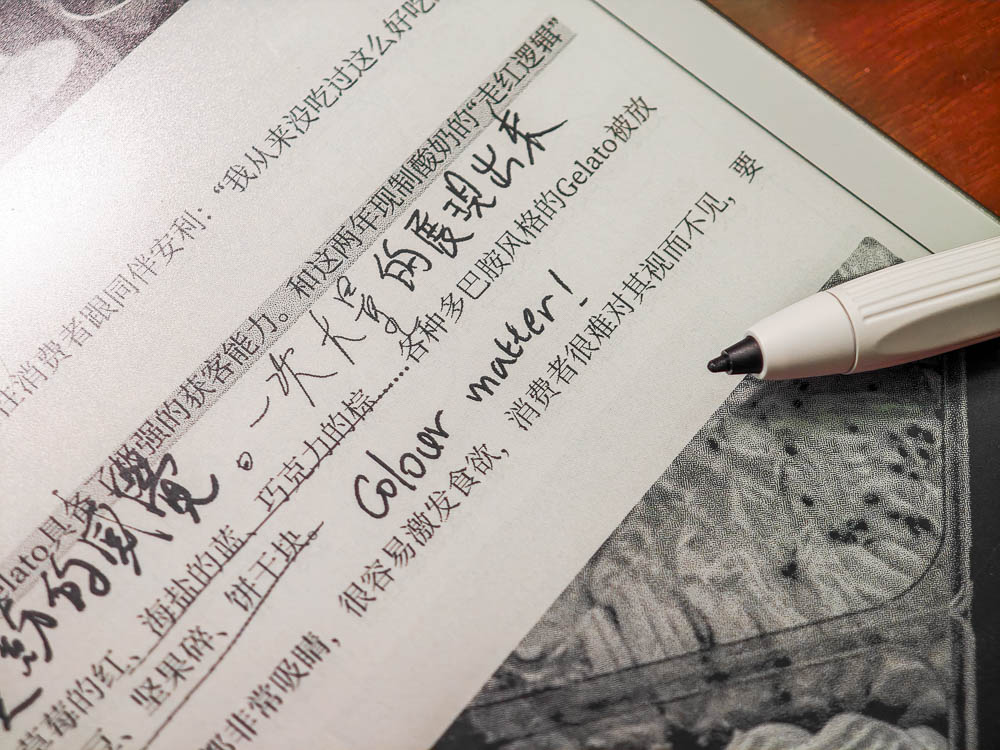 消费者跟同伴安利：“我从来没吃过这么好吃
elato具备 强的获客能力。和这两年现制酸奶的“走红逻辑”
一次大量的展現出来
的感覺。
草莓的红、海盐的蓝、巧克力的棕……各种多巴胺风格的Gelato被放
豆、坚果碎、饼干块。
Colour matter!
都非常吸睛，很容易激发食欲，消费者很难对其视而不见，要